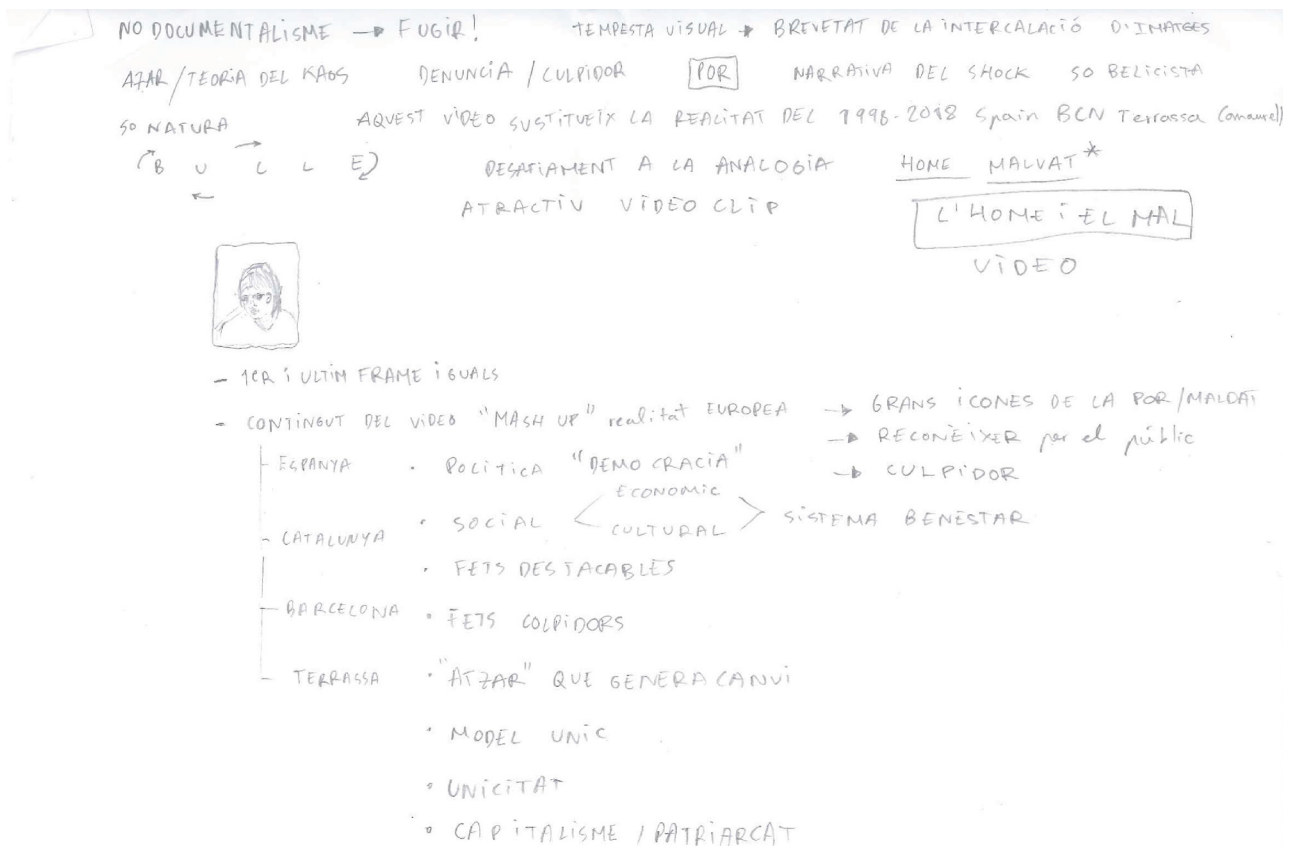 NO DOCUMENTALISME → FUGIR! TEMPESTA VISUAL → BREVETAT DE LA INTERCALACIÓ D'IMATGES
AZAR/TEORIA DEL KAOS DENUNCIA / CULPIDOR POR NARRATIVA DEL SHOCK SO BELICISTA
SO NATURA AQUEST VÍDEO SUSTITUEIX LA REALITAT DEL 1998-2018 Spain BCN Terrassa
B U C L E DESAFIAMENT A LA ANALOGIA HOME MALVAT*
ATRACTIU VIDEO CLIP L'HOME i EL MAL
VIDEO
- 1ER i ULTIM FRAME iGUALS
- CONTINGUT DEL VIDEO "MASH UP" realitat EUROPEA → GRANS ICONES DE LA POR/MALDAT
→ RECONEIXER per el públic
- ESPANYA · POLITICA "DEMOCRACIA" → CULPIDOR
ECONOMIC
- CATALUNYA · SOCIAL < CULTURAL > SISTEMA BENESTAR
· FETS DESTACABLES
- BARCELONA · FETS COLPIDORS
- TERRASSA · "ATZAR" QUE GENERA CANVI
· MODEL UNIC
· UNICITAT
· CAPITALISME / PATRIARCAT